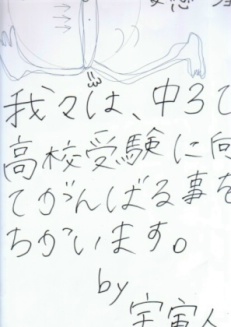 我々は、中3で
高校受験に向
てがんばる事を
ちかいます。
by
宇宙人